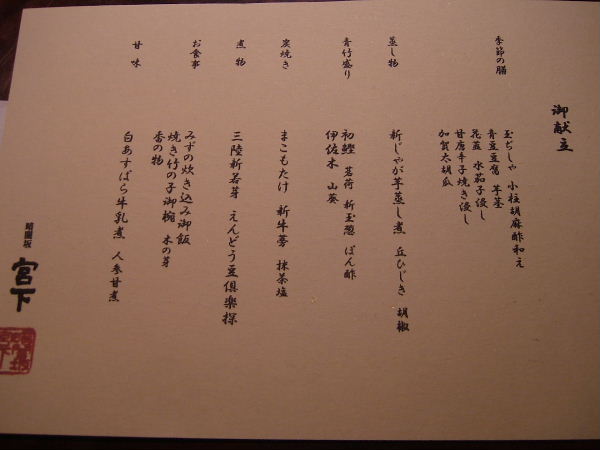 御献立
季節の膳
玉ぢしゃ 小柱胡麻酢和え
青豆豆腐 芋茎
花蓮 水茄子浸し
甘唐辛子焼き浸し
加賀太胡瓜
蒸し物
新じゃが芋蒸し煮 丘ひじき 胡椒
青竹盛り
初鰹 茗荷 新玉葱 ぽん酢
伊佐木 山葵
炭焼き
まこもたけ 新牛蒡 抹茶塩
煮物
三陸新若芽 えんどう豆倶楽探
お食事
みずの炊き込み御飯
焼き竹の子御椀 木の芽
香の物
甘味
白あすぱら牛乳煮 人参甘煮
暗闇坂
宮下